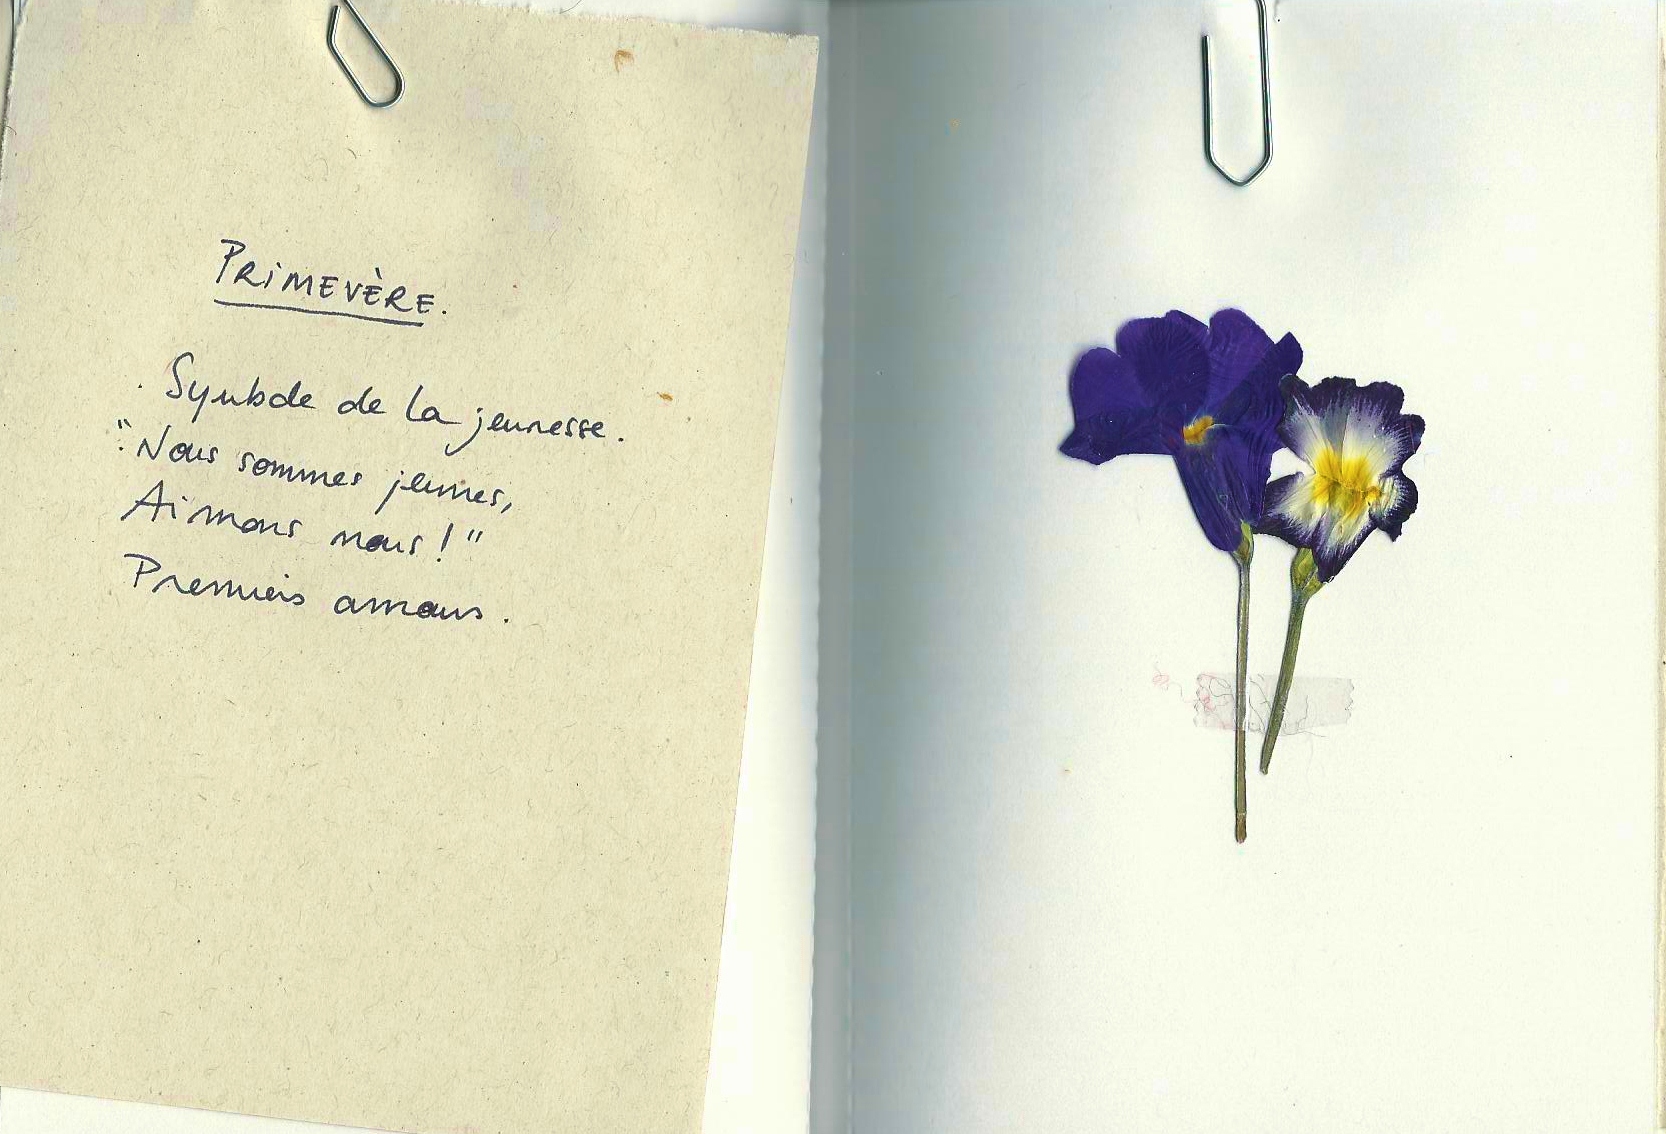 PRIMEVÈRE.
. Symbole de la jeunesse.
"Nous sommes jeunes,
Aimons nous !"
Premiers amours.